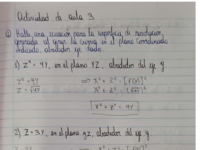 Actividad de aula 3.
① Halla una ecuación para la superficie de revolución
generada al girar la curva en el plano coordenado
indicado, alrededor eje dado.
1) Z² = 4Y, en el plano YZ, alrededor del eje y
Z² = 4Y ⇒ X² + Z² = [r(y)]²
Z = √4Y ⇒ X² + Z² = (√4Y)²
X² + Z² = 4Y
2) Z = 3Y, en el plano yz, alrededor del eje y